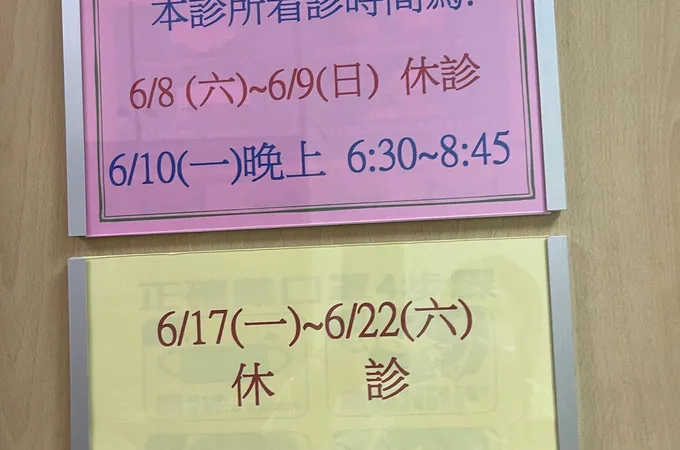 本診所看診時間為:
6/8 (六)~6/9(日) 休診
6/10(一)晚上 6:30~8:45
6/17(一)~6/22(六)
休 診